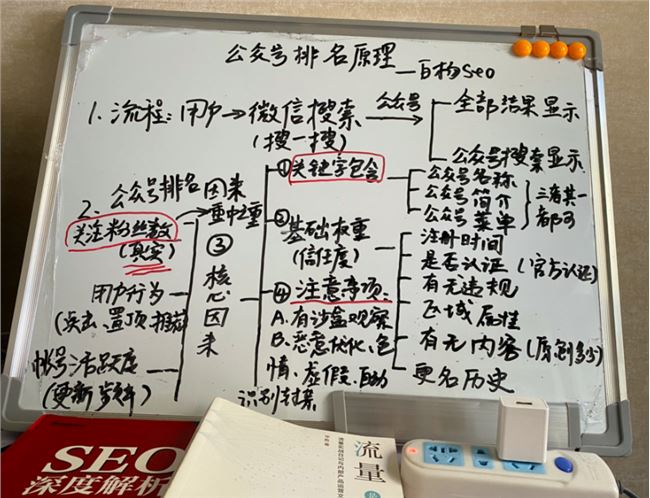 公众号排名原理—百构seo
1. 流程：用户→微信搜索
(搜一搜)
公众号
全部结果显示
公众号搜索显示
2. 公众号排名因素
①关键字包含
公众号名称
公众号简介
公众号菜单
三者其一
都可
②基础权重
(信任度)
注册时间
是否认证(官方认证)
有无违规
区域属性
有无内容(原创多少)
更名历史
③核心因素
重中之重
关注粉丝数
(真实)
用户行为
(点击、置顶、推荐)
帐号活跃度
(更新频率)
④注意事项
A.有沙盒观察
B.恶意优化、色
情、虚假、自动
识别封禁
SEO
深度解析
流量